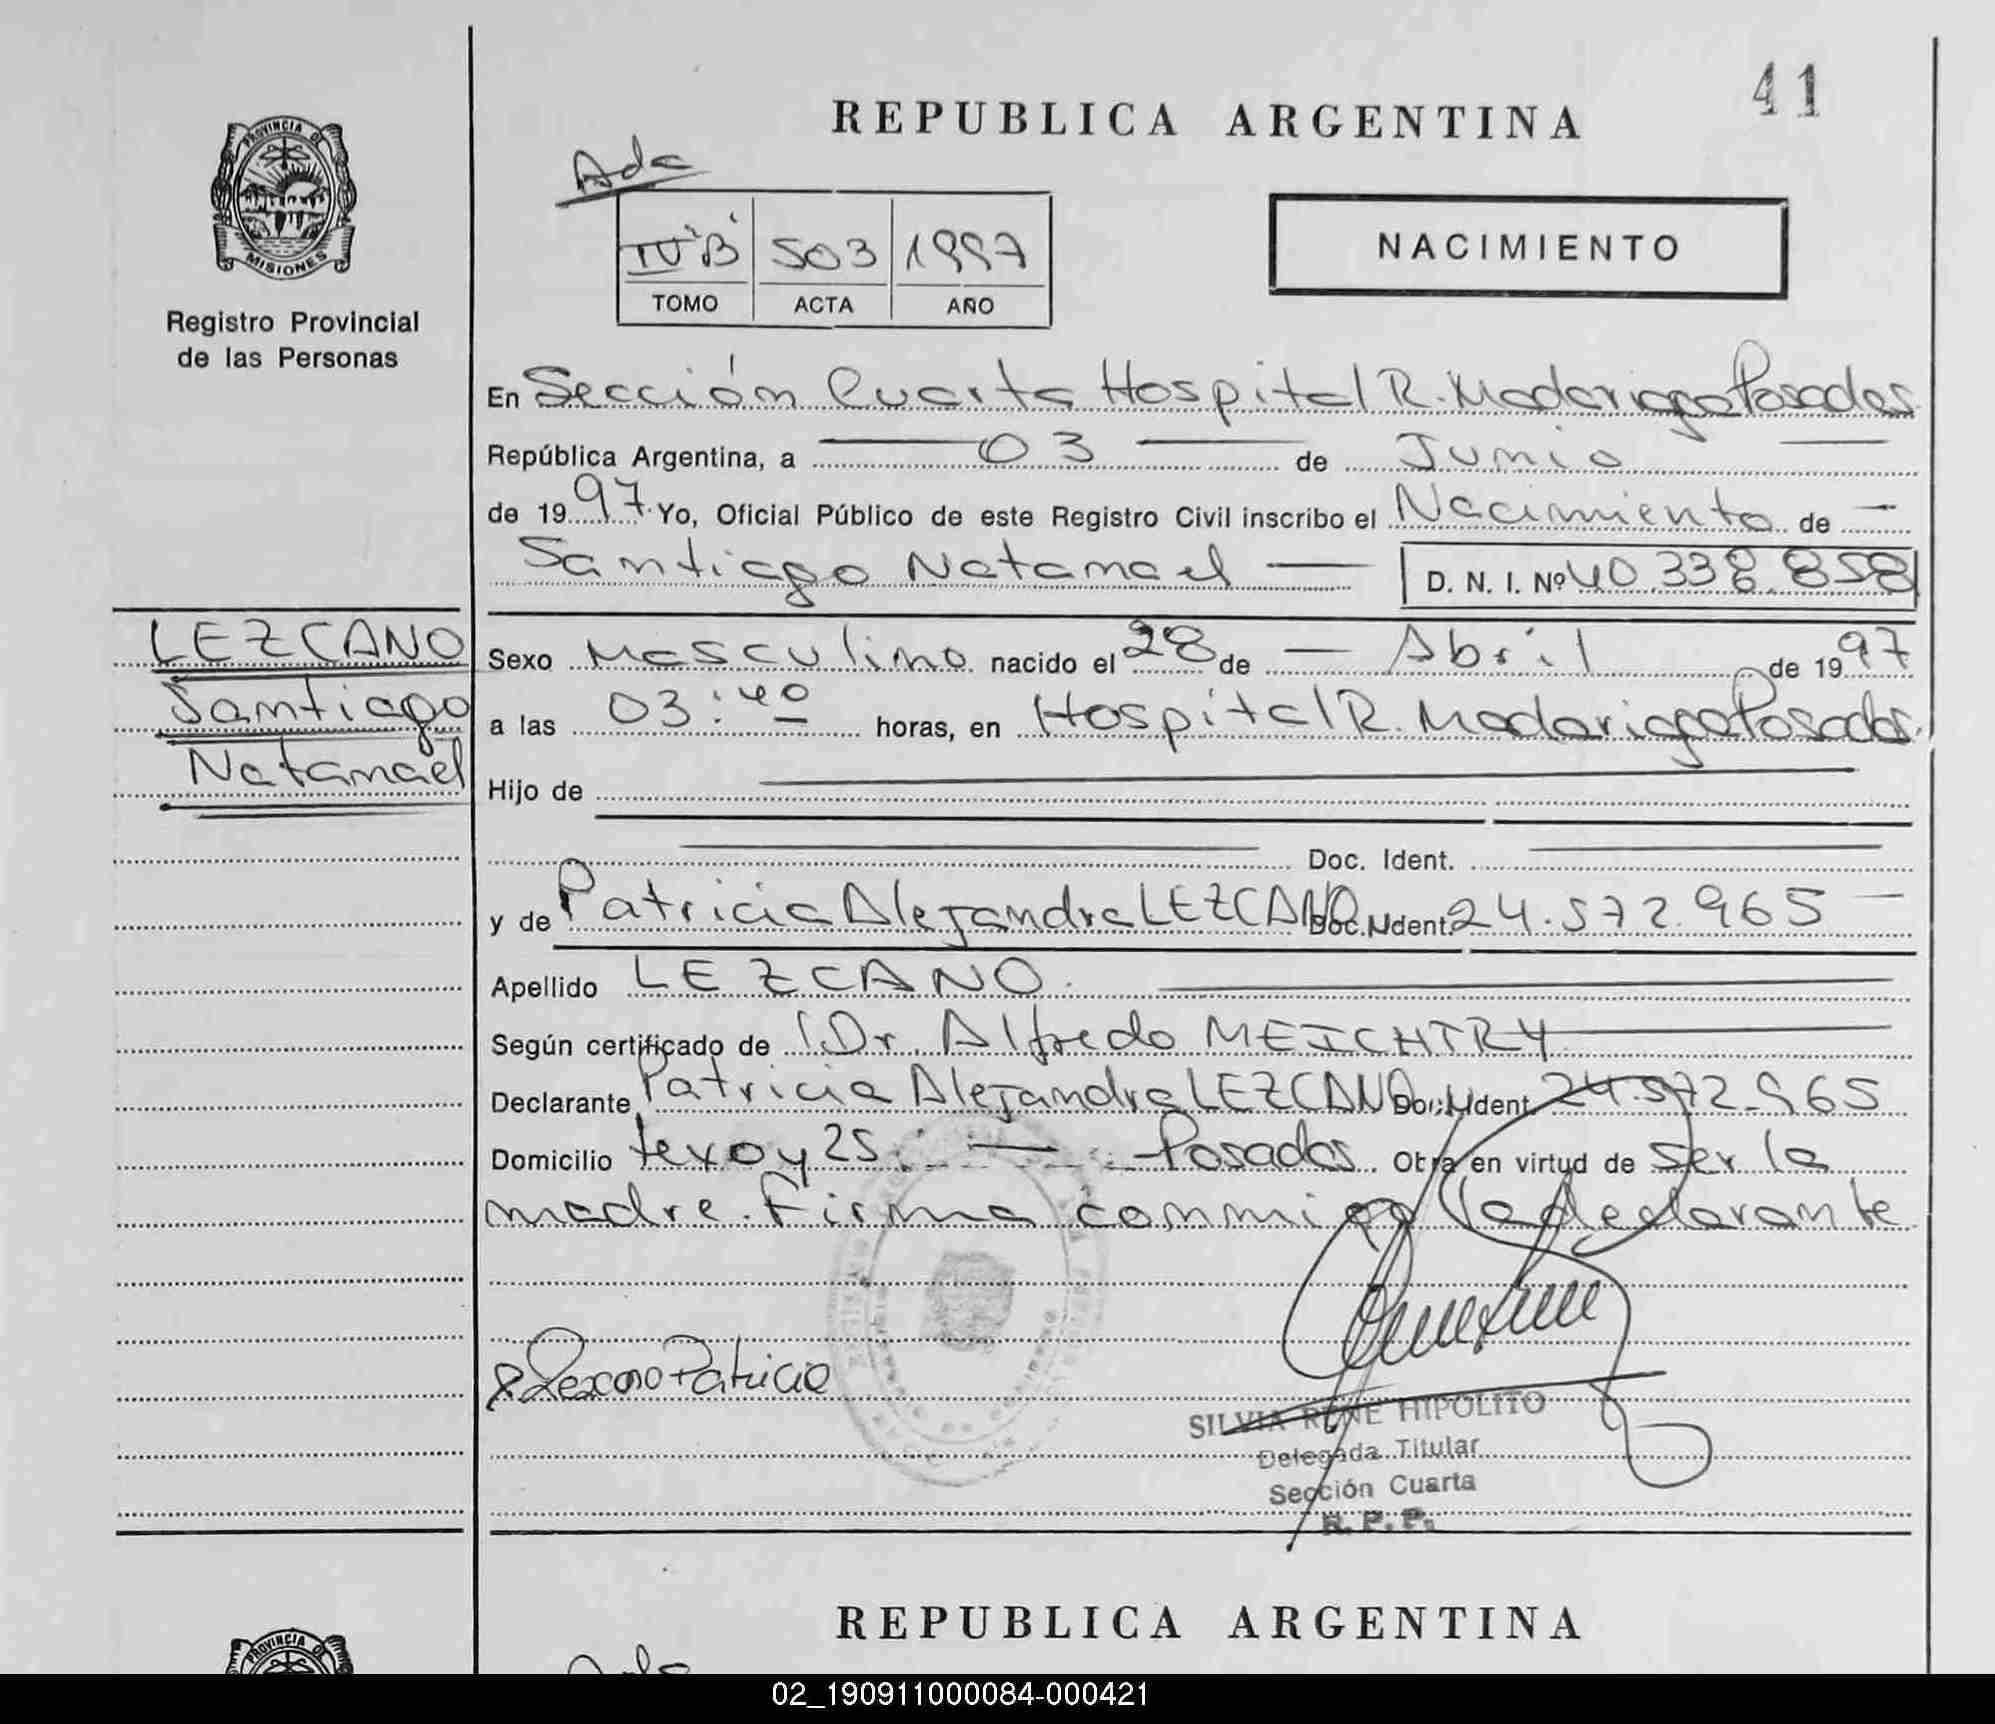 41
REPUBLICA ARGENTINA
Ada
PROVINCIA DE
MISIONES
IV "B" 503 1997
TOMO ACTA AÑO
NACIMIENTO
Registro Provincial
de las Personas
En Sección Cuarta Hospital R. Madariaga Posadas.
República Argentina, a 03 de Junio
de 1997 Yo, Oficial Público de este Registro Civil inscribo el Nacimiento de
Santiago Natanael D. N. I. Nº 40.338.858
LEZCANO
Santiago
Natanael
Sexo Masculino nacido el 28 de Abril de 1997
a las 03:40 horas, en Hospital R. Madariaga Posadas.
Hijo de
Doc. Ident.
y de Patricia Alejandra LEZCANO Doc. Ident. 24.572.965
Apellido LEZCANO.
Según certificado de Dr. Alfredo MEICHTRY
Declarante Patricia Alejandra LEZCANO Doc. Ident. 24.572.965
Domicilio 25 Posadas Obra en virtud de ser la
madre. Firma conmigo la declarante
Lezcano Patricia
SILVIA RENE HIPOLITO
Delegada Titular
Sección Cuarta
R. P. P.
REPUBLICA ARGENTINA
PROVINCIA DE
02_190911000084-000421